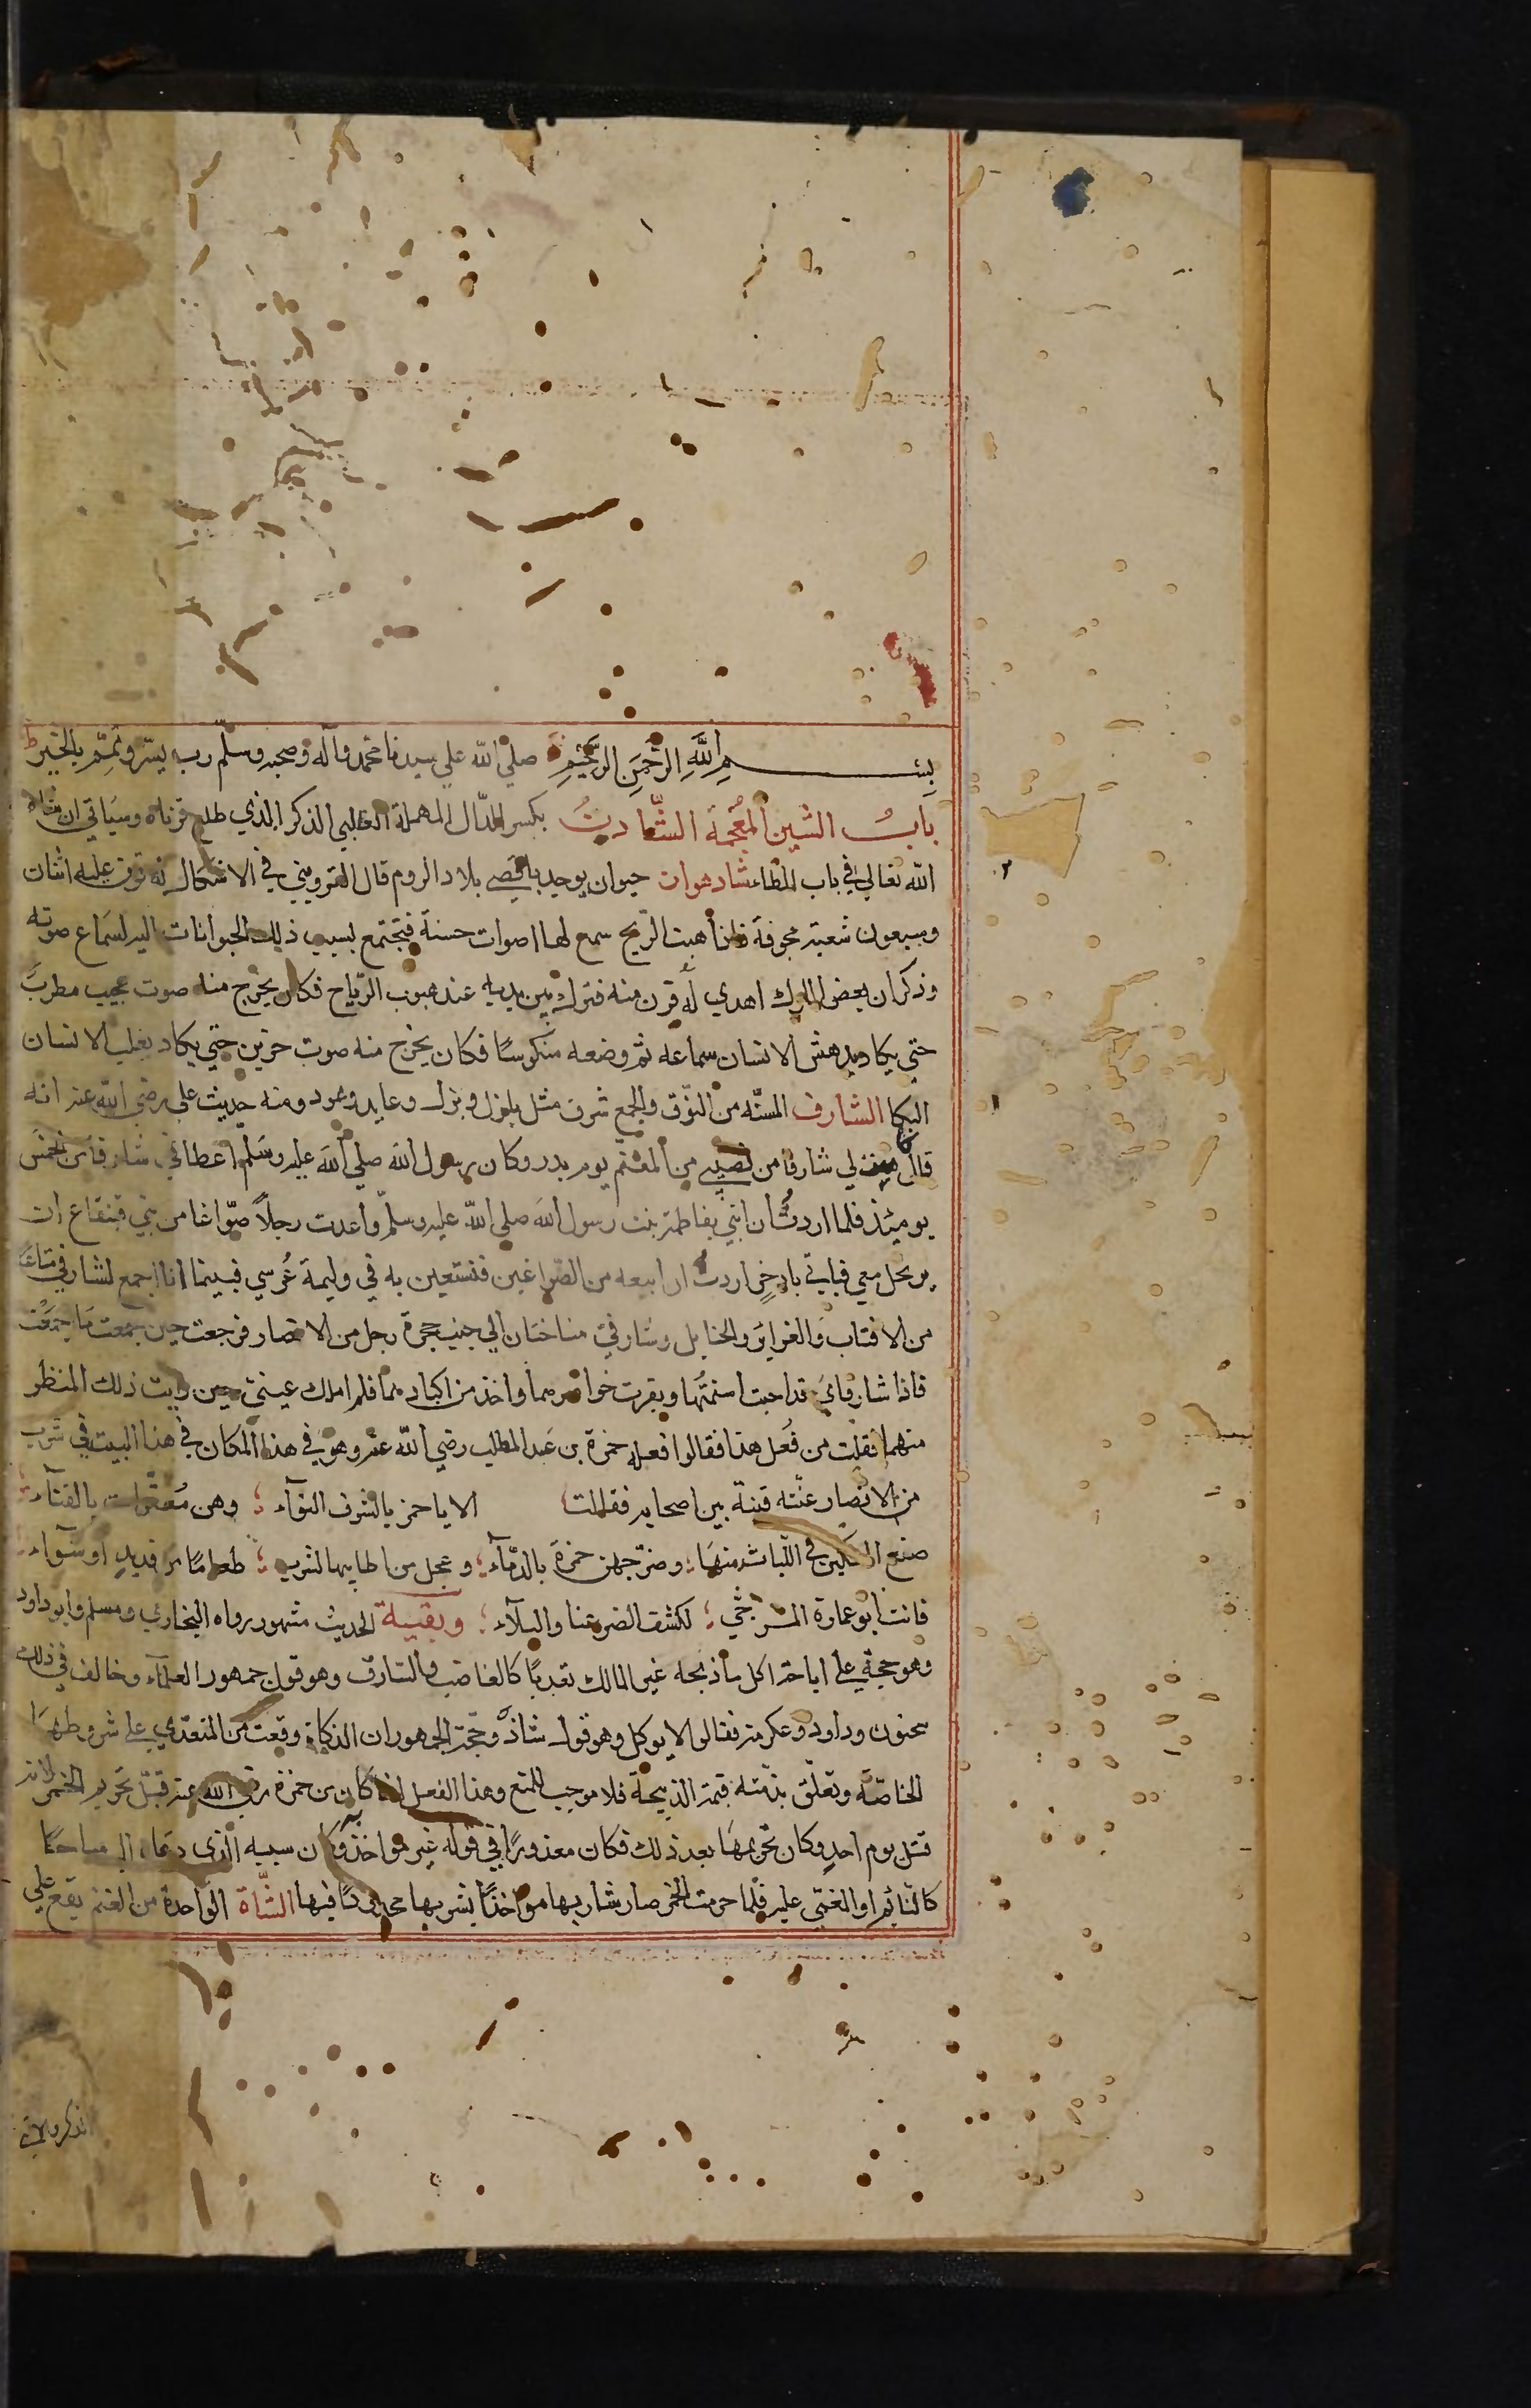 بِسْمِ اللَّهِ الرَّحْمَنِ الرَّحِيْمِ صلي الله علي سيدنا محمد وآله وصحبه وسلّم رب يسّر وتمّم بالخير
بَابُ الشين المُعجمة الشّادِنُ بكسر الدّال المهملة الظبي الذكر الذي طلع قرناه وسيَاتي ان شاء
الله تعالي في باب الظاء شادهوان حيوان يوجد باقصى بلاد الروم قال القزويني في الاشكال له قرن عليه اثنان
وسبعون شعبة مجوفة فاذا هبت الرّيح سمع لها اصوات حسنة فتجتمع بسبب ذلك الحيوانات اليه لسَماع صوته
وذكر ان بعض الملوك اهدي له قرن منه فترك بين يديه عند هبوب الرّياح فكان يخرج منه صوت عجيب مطربٌ
حتي يكاد يدهش الانسان سماعه ثم وضعه منكوسًا فكان يخرج منه صوت حزين حتي يكاد يغلب الانسان
البكا الشارف المسنّه من النوّق والجمع شرف مثل بازل وبزل وعايد وعود ومنه حديث علي رضي الله عنه انه
قال كانت لي شارفا من نصيبي من المغنم يوم بدر وكان رسول الله صلي الله عليه وسَلم اعطاني شارفا من الخمس
يوميئذ فلما اردتُ ان ابتني بفاطمة بنت رسول الله صلي الله عليه وسلّم واعدت رجلاً صوّاغا من بني قينقاع ان
يرتحل معي فياتي باذخرٍ اردت ان ابيعه من الصّواغين فنستعين به في وليمة عُرسي فبينما انا اجمع لشارفي متاعًا
من الاقتاب والغراير والحبايل وشارفيّ مناختان الي جنب حجرة رجل من الانصار فرجعت حين جمعت مَا جمَعْت
فاذا شارفايَ قد اجبت اسنمتُها وبقرت خواصرهما واخذ من اكبادهما فلم املك عينيّ حين رايت ذلك المنظر
منهما فقلت من فعَل هذا فقالوا فعله حمزة بن عَبد المطلب رضي الله عنه وهو في هذا المكان في هذا البيت في شرب
من الانصار غنّته قينة بين اصحابه فقالت الا يا حمز بالشرف النوآء ؛ وهن مُعقّلات بالفنآء ؛
صنع السكين في اللّبات منهَا ؛ وضرّجهن حمزة بالدّمآء ؛ وعجل من اطايبها لشرب ؛ طعامًا من قديدٍ او شوآء ؛
فانت ابو عمارة المرجّي ؛ لكشف الضر عنا والبلآء ؛ وبقية الحديث مشهور رواه البخاري ومسلم وابو داود
وهو حجة علي اباحة اكل ما ذبحه غير المالك تعديًا كالغاصب والسّارق وهو قول جمهور العلمآء وخالف في ذلك
سحنون وداود وعكرمة فقالوا لا يوكل وهو قول شاذّ وحجّة الجمهور ان الذكاة وقعت من المتعدي علي شروطهَا
الخاصّة وتعلّق بذمته قيمة الذبيحة فلا موجب للمنع وهذا الفعل انما كان من حمزة رضي الله عنه قبل تحريم الخمر لانه
قتل يوم احدٍ وكان تحريمهَا بعد ذلك فكان معذورًا في قوله غير مواخذ وكان سببه الذي دعاه اليه مباحًا
كالنّائم او المغمي عليه فلما حرمت الخمر صار شاربها مواخذًا بشربها محدودًا فيها الشّاة الواحدة من الغنم يقع علي